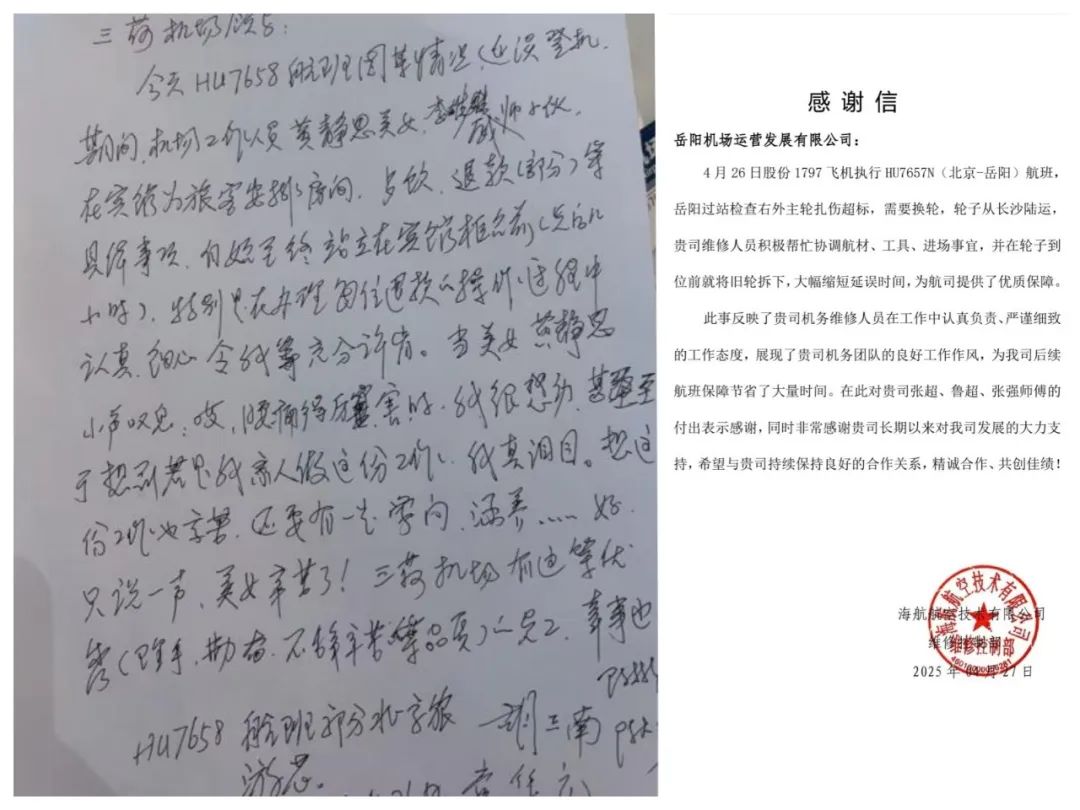 三荷机场领导:
今天HU7658航班因某情况(延误登机
期间,机场工作人员黄静思美女、李
在宾馆为旅客安排房间、
退款(部分)等
具体事项,自始至终站立在宾馆柜台前(
小时)。特别是在办理
退款的操作过程中
认真、细心令我等充分许肯。当美女黄静思
小声叹息:哎,腰痛得厉害时,我很想劝,甚至至
于想到若是我家人做这份工作,我真泪目。想这
份工作也辛苦,还要有一定学问、涵养……好.
只说一声,美女辛苦了!三荷机场有这等优
秀(
勤奋、不辞辛苦等品质)的员工,幸事也
HU7658航班部分北京旅
游芯。
感谢信
岳阳机场运营发展有限公司:
4月26日股份1797飞机执行HU7657N(北京-岳阳)航班,
岳阳过站检查右外主轮扎伤超标,需要换轮,轮子从长沙陆运,
贵司维修人员积极帮忙协调航材、工具、进场事宜,并在轮子到
位前就将旧轮拆下,大幅缩短延误时间,为航司提供了优质保障。
此事反映了贵司机务维修人员在工作中认真负责、严谨细致
的工作态度,展现了贵司机务团队的良好工作作风,为我司后续
航班保障节省了大量时间。在此对贵司张超、鲁超、张强师傅的
付出表示感谢,同时非常感谢贵司长期以来对我司发展的大力支
持,希望与贵司持续保持良好的合作关系,精诚合作、共创佳绩!
海航航空技术有限公司
维修控制部
2025年04月27日
海航航空技术有限公司
维修控制部